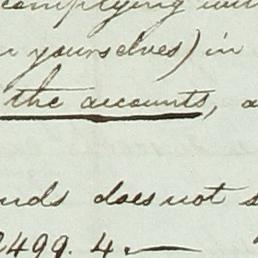 complying wi
yourselves) in
the accounts, a
nds does not s
2499. 4. —